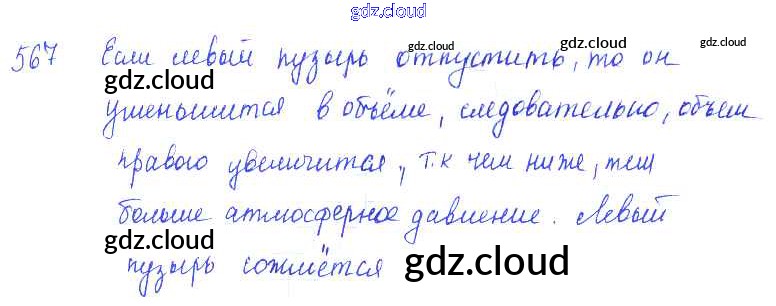 gdz.cloud
gdz.cloud
567 Если левый пузырь отпустить, то он
gdz.cloud gdz.cloud gdz.cloud
gdz.cloud
уменьшится в объёме, следовательно, объем
правого увеличится, т.к чем ниже, тем
gdz.cloud gdz.cloud
больше атмосферное давление. Левый
gdz.cloud
пузырь сожмётся
gdz.cloud